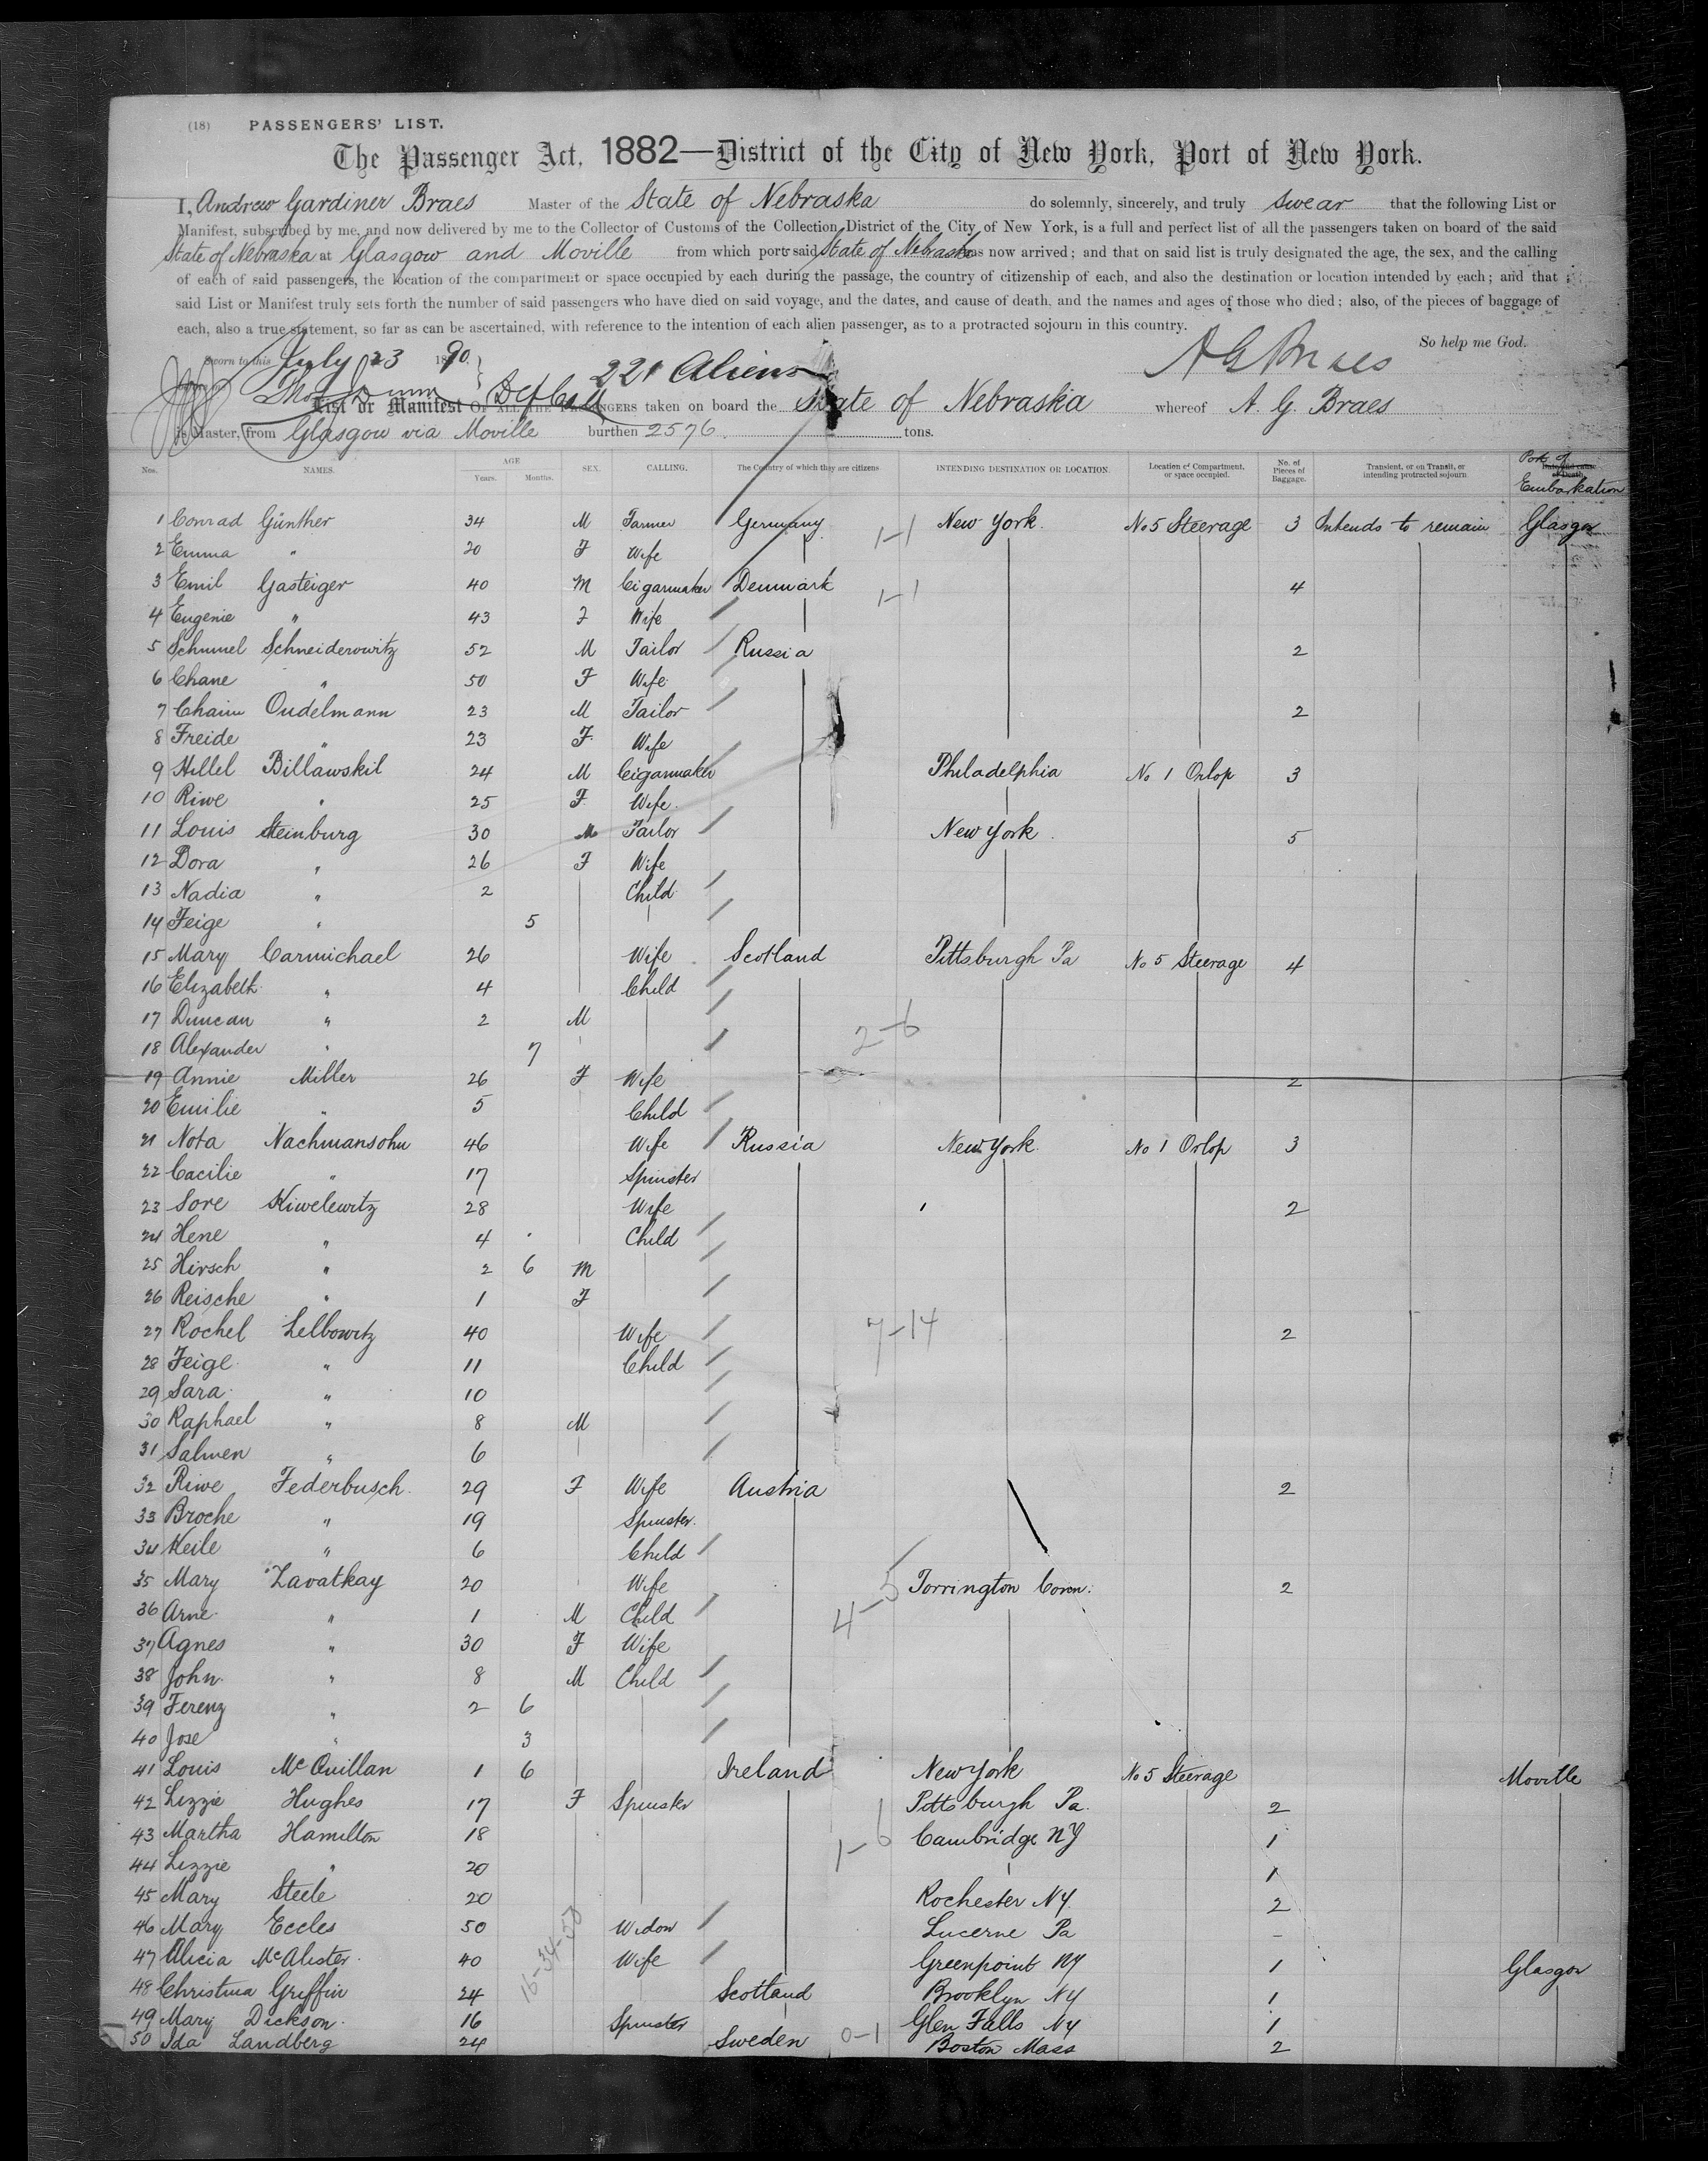 (18) PASSENGERS' LIST.
The Passenger Act, 1882—District of the City of New York, Port of New York.
I, Andrew Gardiner Braes Master of the State of Nebraska do solemnly, sincerely, and truly swear that the following List or
Manifest, subscribed by me, and now delivered by me to the Collector of Customs of the Collection District of the City of New York, is a full and perfect list of all the passengers taken on board of the said
State of Nebraska at Glasgow and Moville from which port said State of Nebraska has now arrived; and that on said list is truly designated the age, the sex, and the calling
of each of said passengers, the location of the compartment or space occupied by each during the passage, the country of citizenship of each, and also the destination or location intended by each; and that
said List or Manifest truly sets forth the number of said passengers who have died on said voyage, and the dates, and cause of death, and the names and ages of those who died; also, of the pieces of baggage of
each, also a true statement, so far as can be ascertained, with reference to the intention of each alien passenger, as to a protracted sojourn in this country.
So help me God.
Sworn to this July 23 1890
A G Braes
221 Aliens
List or Manifest OF ALL THE PASSENGERS taken on board the State of Nebraska whereof A. G. Braes
is Master, from Glasgow via Moville burthen 2576 tons.
Nos. NAMES. AGE Years. Months. SEX. CALLING. The Country of which they are citizens INTENDING DESTINATION OR LOCATION. Location of Compartment, or space occupied. No. of Pieces of Baggage. Transient, or on Transit, or intending protracted sojourn Port of Embarkation
1 Conrad Günther 34 M Farmer Germany 1-1 New York. No 5 Steerage 3 Intends to remain Glasgow
2 Emma " 20 F Wife
3 Emil Gasteiger 40 M Cigarmaker Denmark 1-1 4
4 Eugenie " 43 F Wife
5 Schmuel Schneiderowitz 52 M Tailor Russia 2
6 Chane " 50 F Wife
7 Chaim Oudelmann 23 M Tailor 2
8 Freide " 23 F Wife
9 Hillel Billawskil 24 M Cigarmaker Philadelphia No 1 Orlop 3
10 Riwe " 25 F Wife.
11 Louis Steinburg 30 M Tailor New York. 5
12 Dora " 26 F Wife
13 Nadia " 2 Child
14 Feige " 5
15 Mary Carmichael 26 Wife Scotland Pittsburgh Pa No 5 Steerage 4
16 Elizabeth " 4 Child
17 Duncan " 2 M 2-6
18 Alexander " 7
19 Annie Miller 26 F Wife 2
20 Emilie " 5 Child
21 Nota Nachmansohn 46 Wife Russia New York. No 1 Orlop 3
22 Cacilie " 17 Spinster
23 Sore Kiwelewitz 28 Wife 2
24 Hene " 4 Child
25 Hirsch " 2 6 M
26 Reische " 1 F
27 Rochel Lelbowitz 40 Wife 7-14 2
28 Feige " 11 Child
29 Sara " 10
30 Raphael " 8 M
31 Salmen " 6
32 Riwe Federbusch 29 F Wife Austria 2
33 Broche " 19 Spinster.
34 Keile " 6 Child
35 Mary Zavatkay 20 Wife 4-5 Torrington Conn. 2
36 Arne " 1 M Child
37 Agnes " 30 F Wife
38 John " 8 M Child
39 Ferenz " 2 6
40 Jose " 3
41 Louis McQuillan 1 6 Ireland New York No 5 Steerage Moville
42 Lizzie Hughes 17 F Spinster Pittsburgh Pa. 2
43 Martha Hamilton 18 1-6 Cambridge NY 1
44 Lizzie " 20 1
45 Mary Steele 20 Rochester NY. 2
46 Mary Eccles 50 Widow Lucerne Pa -
47 Alicia McAlister 40 Wife Greenpoint NY 1 Glasgow
48 Christina Griffin 24 Scotland Brooklyn NY 1
49 Mary Dickson 16 Spinster Glen Falls NY 1
50 Ida Landberg 24 Sweden 0-1 Boston Mass 2